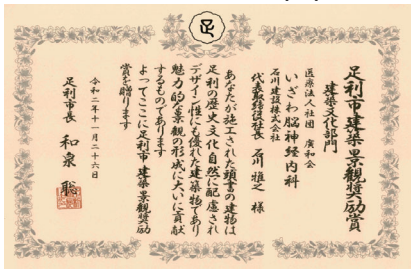 足利市建築景観奨励賞
建築文化部門
医療法人社団 廣和会
いざわ脳神経内科
石川建設株式会社
代表取締役社長 石川雅之 様
あなたが施工された頭書の建物は
足利の歴史文化自然に配慮され
デザイン性にも優れた建築物であり
魅力的な景観の形成に大いに貢献
するものであります
よってここに足利市建築景観奨励
賞を贈ります
令和二年十一月二十六日
足利市長 和泉 聡